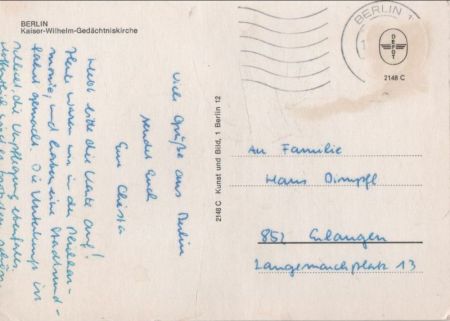 BERLIN
Kaiser-Wilhelm-Gedächtniskirche
BERLIN 1
DEPOT
2148 C
2148 C Kunst und Bild, 1 Berlin 12
Viele Grüße aus Berlin
sendet Euch
Eure Christa
Hebt bitte die Karte auf!
Heute waren wir in der Philhar-
monie, und haben eine Stadtrund-
fahrt gemacht. Die Unterkunft ist
die Verpflegung ebenfalls
An Familie
Hans Dimpfl
852 Erlangen
Langemarckplatz 13